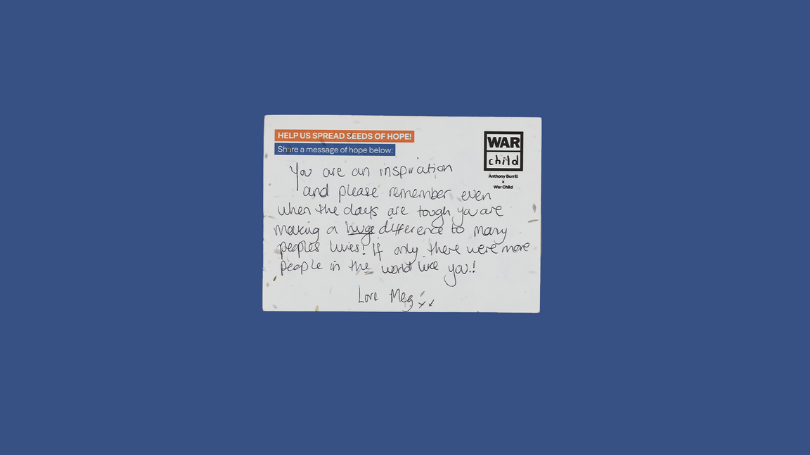 HELP US SPREAD SEEDS OF HOPE!
Share a message of hope below:
WAR
child
Anthony Burrill
x
War Child
You are an inspiration
and please remember even
when the days are tough you are
making a huge difference to many
peoples lives! If only there were more
people in the world like you!
Love Meg xx